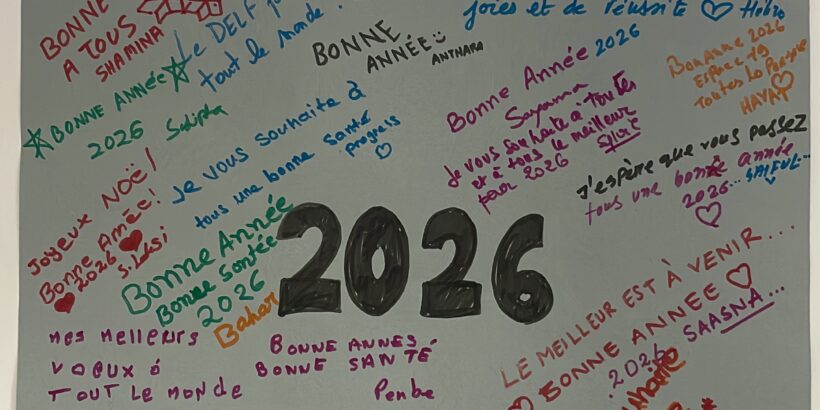 BONNE
A TOUS
SHAMINA
le DELF
tout le monde!
BONNE
ANNÉE
ANTHARA
joies et de réussite
Bonne Année 2026
Je vous souhaite à toutes
et à tous le meilleur
pour 2026
Bonanne 2026
Espace 19
HAYAT
BONNE ANNÉE
2026
Je vous souhaite à
tous une bonne santé
progrès
J'espère que vous passez
tous une bonne année
2026... SAIFUL...
Joyeux NOËL!
Bonne Année!
2026
S. Laksi
Bonne Année
Bonne Santée
2026
Bahar
2026
mes meilleurs
voeux à
TOUT le monde
BONNE ANNES
BONNE SANTÉ
Penbe
LE MEILLEUR EST À VENIR...
BONNE ANNEE
2026 SAASNA...